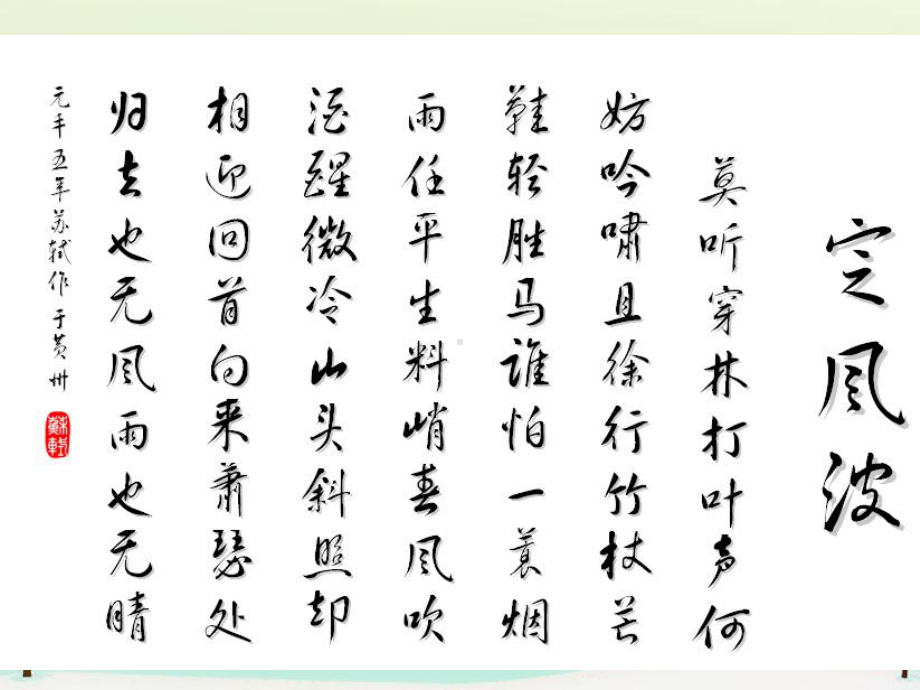 定风波
莫听穿林打叶声何
妨吟啸且徐行竹杖芒
鞋轻胜马谁怕一蓑烟
雨任平生料峭春风吹
酒醒微冷山头斜照却
相迎回首向来萧瑟处
归去也无风雨也无晴
元丰五年苏轼作 于黄州